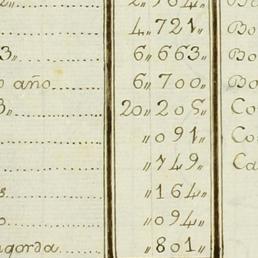 4„721„ Bo
3„ 6„663„ Bo
o año 6„700„ Bo
3„ 20„205„ Co
„091„ Co
„749„ Ca
s „164„
o „094„
ngorda „801„